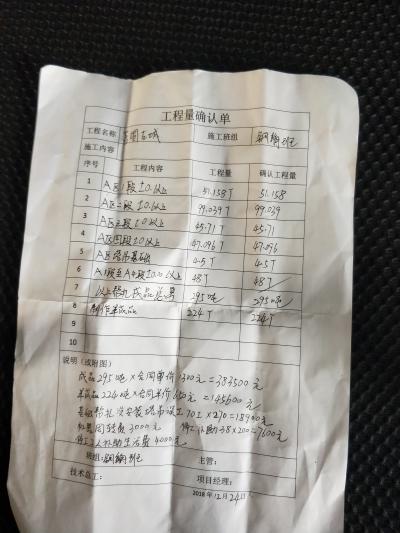 工程量确认单
工程名称 古城 施工班组 钢筋班
施工内容
序号 工程内容 工程量 确认工程量
1 A区1段±0以上 51.158T 51.158
2 A区二段±0以上 99.039T 99.039
3 A区三段±0以上 45.71T 45.71
4 A区四段±0以上 47.096T 47.096
5 A区塔吊基础 4.5T 4.5T
6 A1段至A4段±0.0以上 48T 48T
7 以上绑扎成品总量 295吨 295吨
8 制作半成品 224T 224T
9
10
说明(或附图)
成品295吨×合同单价1300元=383500元
半成品224吨×合同单价650元=145600元
基础 安装塔吊误工70工×270=18900元
周转费3000元 补助38×200=7600元
工人补助生活费4000元
班组:钢筋班 主管:
技术总工: 项目经理:
2018年12月24日